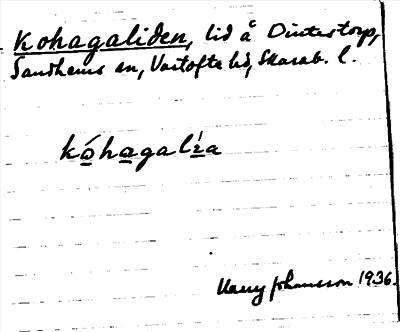 Kohagaliden, lid å Dintestorp,
Sandhems sn, Vartofte hd, Skarab. l.
kóhagalia
Harry Johansson 1936.